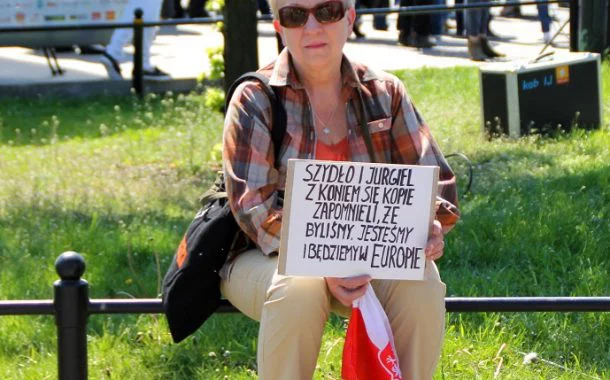 SZYDŁO I JURGIEL
Z KONIEM SIĘ KOPIE
ZAPOMNIELI, ŻE
BYLIŚMY, JESTEŚMY
I BĘDZIEMY W EUROPIE